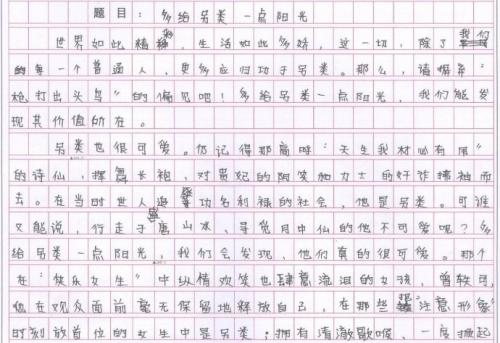 题目：多给另类一点阳光
世界如此精彩，生活如此多娇，这一切，除了我们
的每一个普通人，更多应归功于另类。那么，请摒弃"
枪打出头鸟"的偏见吧！多给另类一点阳光，我们能发
现其价值所在。
另类也很可爱。仍记得那高呼"天生我材必有用"
的诗仙，挥舞长袖，对贵妃的阴笑和力士的奸诈拂袖而
去。在当时世人追崇功名利禄的社会，他是另类。可谁
又能说，行走于唐山水、寻觅月中仙的他不可爱呢？多
给另类一点阳光，我们会发现，他们真的很可爱。那个
在"快乐女生"中纵情欢笑也肆意流泪的女孩，曾轶可，
她在观众面前毫无保留地释放自己，在那些把"注意形象"
时刻放首位的女生中是另类；拥有清澈歌喉、一度掀起